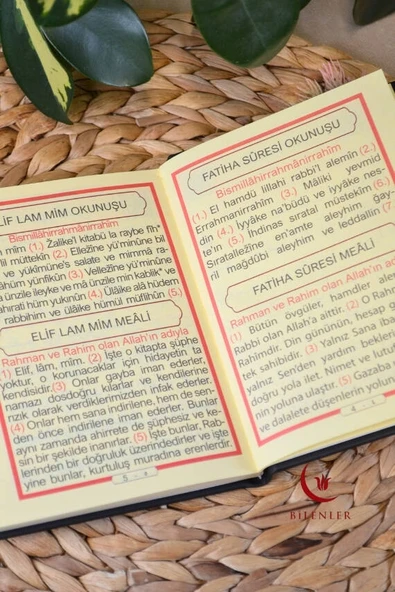 ELİF LAM MİM OKUNUŞU
Bismillâhirrahmânirrahîm
mîm (1.) Zalike'l kitabü la raybe fîh*
lil müttekîn (2.) Ellezîne yü'minûne bil
ve yükîmûne's salate ve mimmâ ra-
hüm yünfikûn (3.) Vellezîne yü'minûne
ünzile ileyke ve mâ ünzile min kablik* ve
ahirati hüm yukınûn (4.) Ülâike alâ hüdem
rabbihim ve ülâike hümül müflihûn (5.)
ELİF LAM MİM MEÂLİ
Rahman ve Rahim olan Allah'ın adıyla
(1) Elif, lâm, mîm. (2) İşte o kitapta şüphe
yoktur, o korunacaklar için hidayetin ta
kendisidir.(3) Onlar gayba iman ederler,
namazı dosdoğru kılarlar ve kendilerine
rızık olarak verdiklerimizden infak ederler.
(4) Onlar hem sana indirilene, hem de sen-
den önce indirilene iman ederler. Bunlar
aynı zamanda ahirete de şüphesiz ve ke-
sin bir şekilde inanırlar. (5) İşte bunlar, Rab-
lerinden bir doğruluk üzerindedirler ve işte
yine bunlar, kurtuluş muradına erenlerdir.
FATİHA SÛRESİ OKUNUŞU
Bismillâhirrahmânirrahîm
(1.) El hamdü lillahi rabbi'l alemîn (2.)
Errahmanirrahîm (3.) Mâliki yevmid
dîn (4.) İyyâke na'büdü ve iyyâke nes-
te'în (5.) İhdinas sıratal müstekîm (6.)
Sıratallezîne en'amte aleyhim ğay-
ril mağdûbi aleyhim ve leddallîn (7
FATİHA SÛRESİ MEÂLİ
Rahman ve Rahim olan Allah'ın ad
(1) Bütün övgüler, hamdler alem
Rabbi olan Allah'a aittir. (2) O Rah
Rahîmdir. Din gününün, hesap g
tek sahibidir. (3) Yalnız Sana iba
yalnız Sen'den yardım bekler
doğru yola ilet. Nimet ve lutuf
nin yoluna ulaştır. (5) Gazaba
ve dalalete düşenlerin yolun
BİLENLER